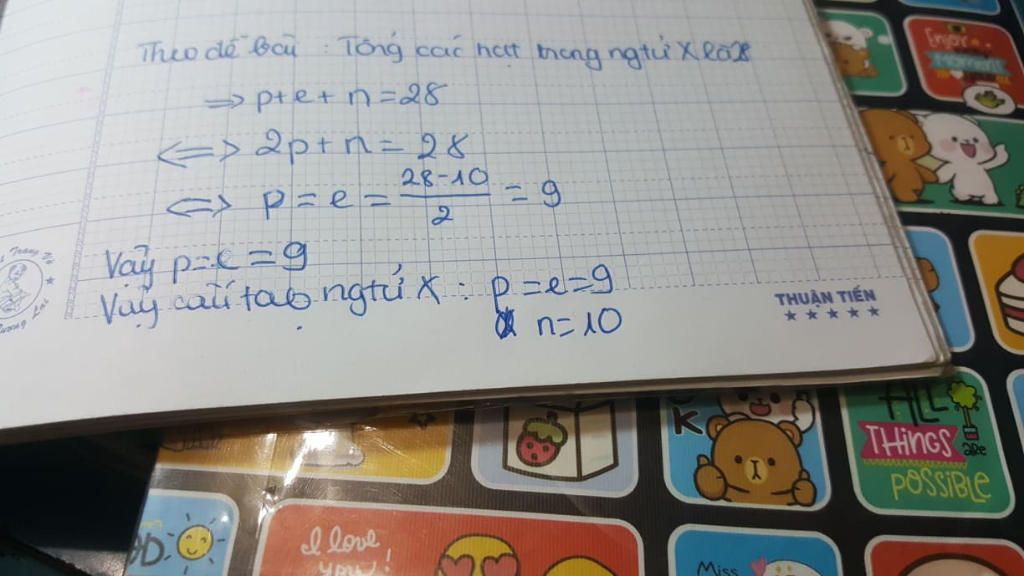 Theo đề bài : Tổng các hạt trong ngtử X là 28
=> p+e+n=28
<=> 2p+n=28
<=> p=e= 28-10/2 = 9
Vậy p=e=9
Vậy cấu tạo ngtử X : p=e=9
n=10
THUẬN TIẾN
★★★★★
Enjoy
MOMENT
K
ALL
THINGS
are
POSSIBLE
I love
you!
Miss